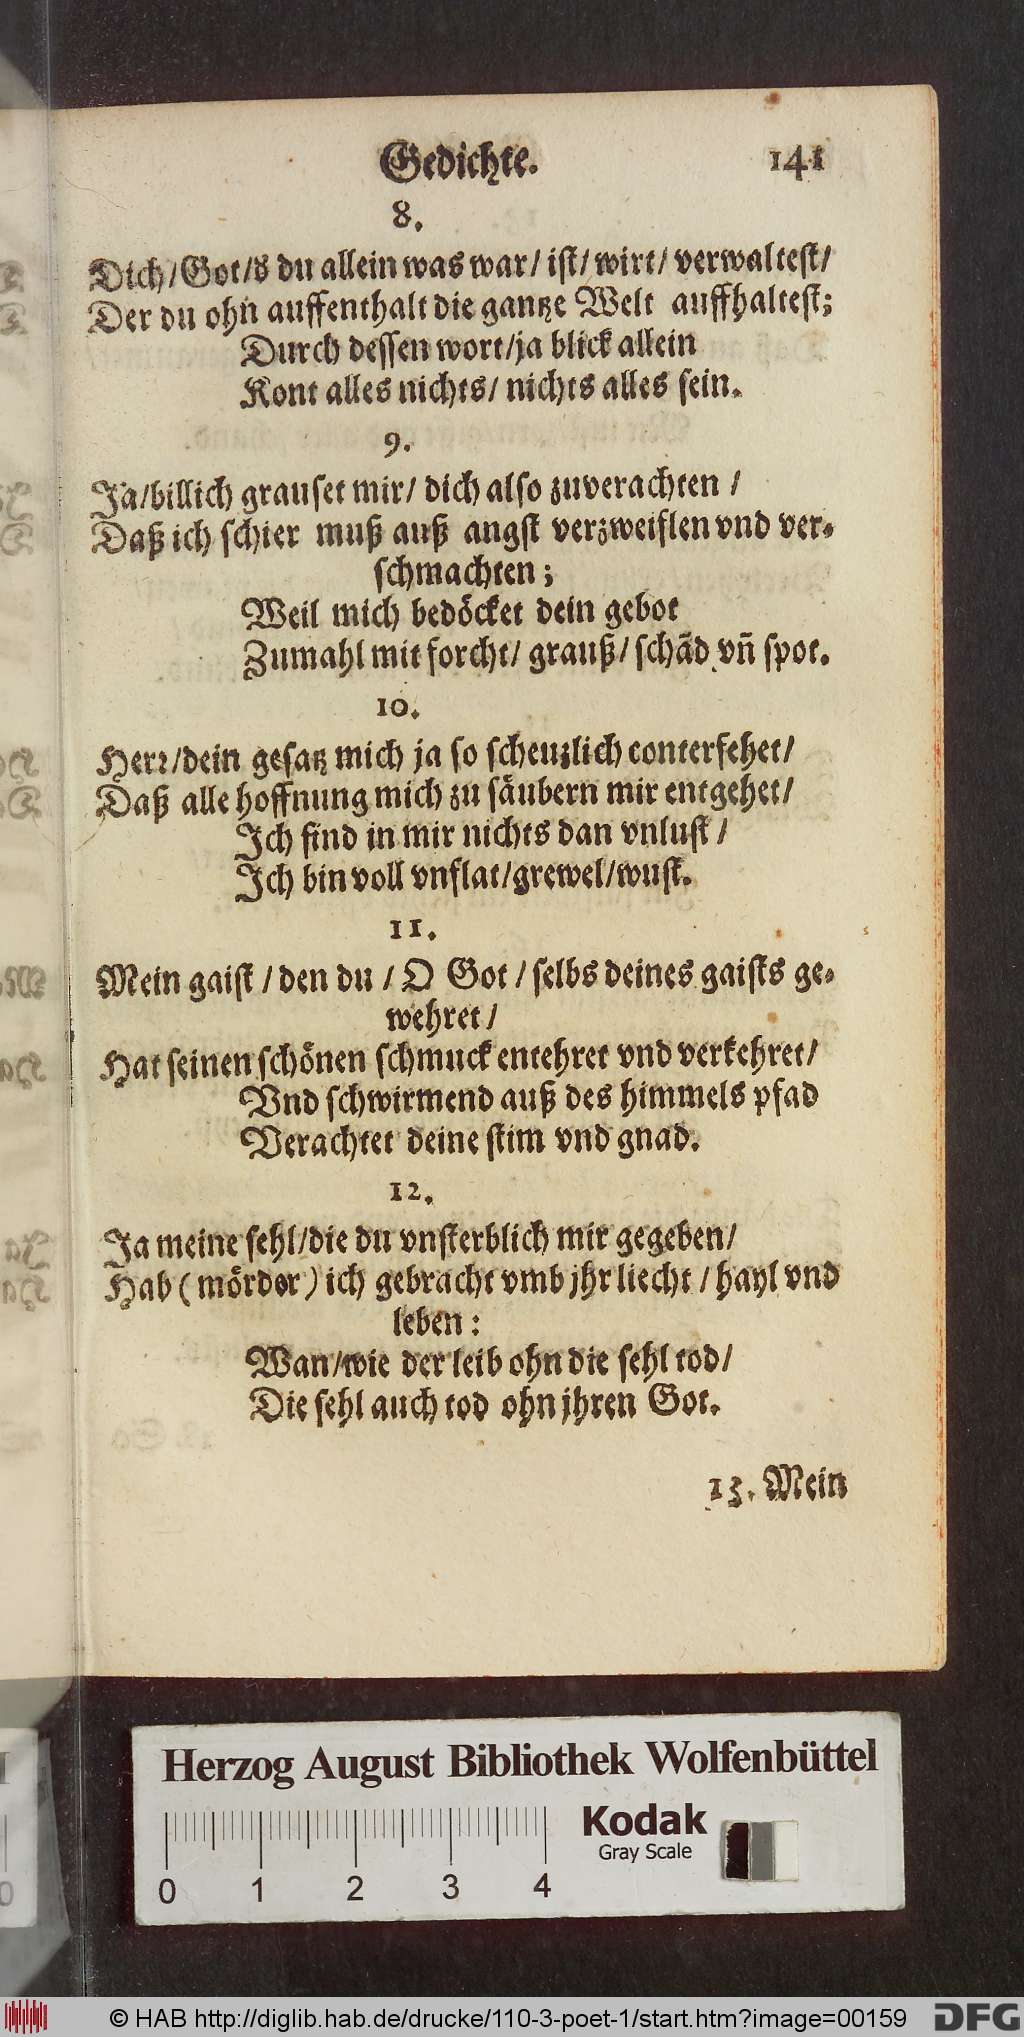 Gedichte. 141
8.
Dich/Got/s du allein was war/ ist/ wirt/ verwaltest/
Der du ohn auffenthalt die gantze Welt auffhaltest;
Durch dessen wort/ja blick allein
Kont alles nichts/ nichts alles sein.
9.
Ja/billich grauset mir/ dich also zuverachten /
Daß ich schier muß auß angst verzweiflen vnd ver-
schmachten;
Weil mich bedöcket dein gebot
Zumahl mit forcht/ grauß/ schãd vñ spot.
10.
Herꝛ/dein gesatz mich ja so scheuzlich conterfehet/
Daß alle hoffnung mich zu säubern mir entgehet/
Ich find in mir nichts dan vnlust /
Ich bin voll vnflat/grewel/wust.
11.
Mein gaist / den du / O Got / selbs deines gaists ge-
wehret /
Hat seinen schönen schmuck entehret vnd verkehret/
Vnd schwirmend auß des himmels pfad
Verachtet deine stim vnd gnad.
12.
Ja meine sehl/die du vnsterblich mir gegeben/
Hab (mörder) ich gebracht vmb jhr liecht / hayl vnd
leben:
Wan/wie der leib ohn die sehl tod/
Die sehl auch tod ohn jhren Got.
13. Mein
Herzog August Bibliothek Wolfenbüttel
Kodak
Gray Scale
0 1 2 3 4
© HAB http://diglib.hab.de/drucke/110-3-poet-1/start.htm?image=00159
DFG